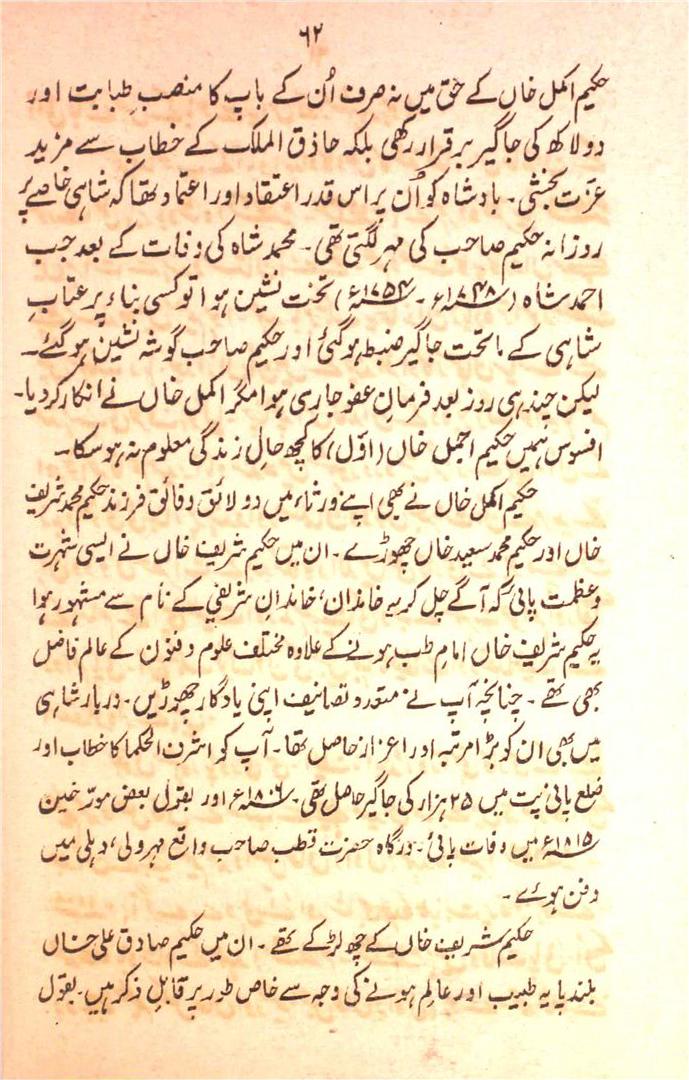 ۶۲
حکیم اکمل خاں کے حق میں نہ صرف اُن کے باپ کا منصبِ طبابت اور
دو لاکھ کی جاگیر برقرار رکھی بلکہ حاذق الملک کے خطاب سے مزید
عزّت بخشی۔ بادشاہ کو اُن پر اس قدر اعتقاد اور اعتماد تھا کہ شاہی خاصے پر
روزانہ حکیم صاحب کی مہر لگتی تھی۔ محمد شاہ کی وفات کے بعد جب
احمد شاہ (۱۷۴۸ء - ۱۷۵۴ء) تخت نشین ہوا تو کسی بناء پر عتابِ
شاہی کے ماتحت جاگیر ضبط ہوگئی اور حکیم صاحب گوشہ نشین ہوگئے۔
لیکن چند ہی روز بعد فرمانِ عفو جاری ہوا مگر اکمل خاں نے انکار کردیا۔
افسوس ہمیں حکیم اجمل خاں (اوّل) کا کچھ حالِ زندگی معلوم نہ ہوسکا۔
حکیم اکمل خاں نے بھی اپنے ورثاء میں دو لائق و فائق فرزند حکیم محمد شریف
خاں اور حکیم محمد سعید خاں چھوڑے۔ ان میں حکیم شریف خاں نے ایسی شہرت
و عظمت پائی کہ آگے چل کر یہ خاندان، خاندانِ شریفی کے نام سے مشہور ہوا
یہ حکیم شریف خاں امامِ طب ہونے کے علاوہ مختلف علوم و فنون کے عالم فاضل
بھی تھے۔ چنانچہ آپ نے متعدد تصانیف اپنی یادگار چھوڑیں۔ دربار شاہی
میں بھی ان کو بڑا مرتبہ اور اعزاز حاصل تھا۔ آپ کو اشرف الحکما کا خطاب اور
ضلع پانی پت میں ۲۵ ہزار کی جاگیر حاصل تھی۔ ۱۸۰۶ء اور بقول بعض مورّخین
۱۸۱۵ء میں وفات پائی۔ درگاہ حضرت قطب صاحب واقع مہرولی، دہلی میں
دفن ہوئے۔
حکیم شریف خاں کے چھ لڑکے تھے۔ ان میں حکیم صادق علی خاں
بلند پایہ طبیب اور عالم ہونے کی وجہ سے خاص طور پر قابلِ ذکر ہیں۔ بقول